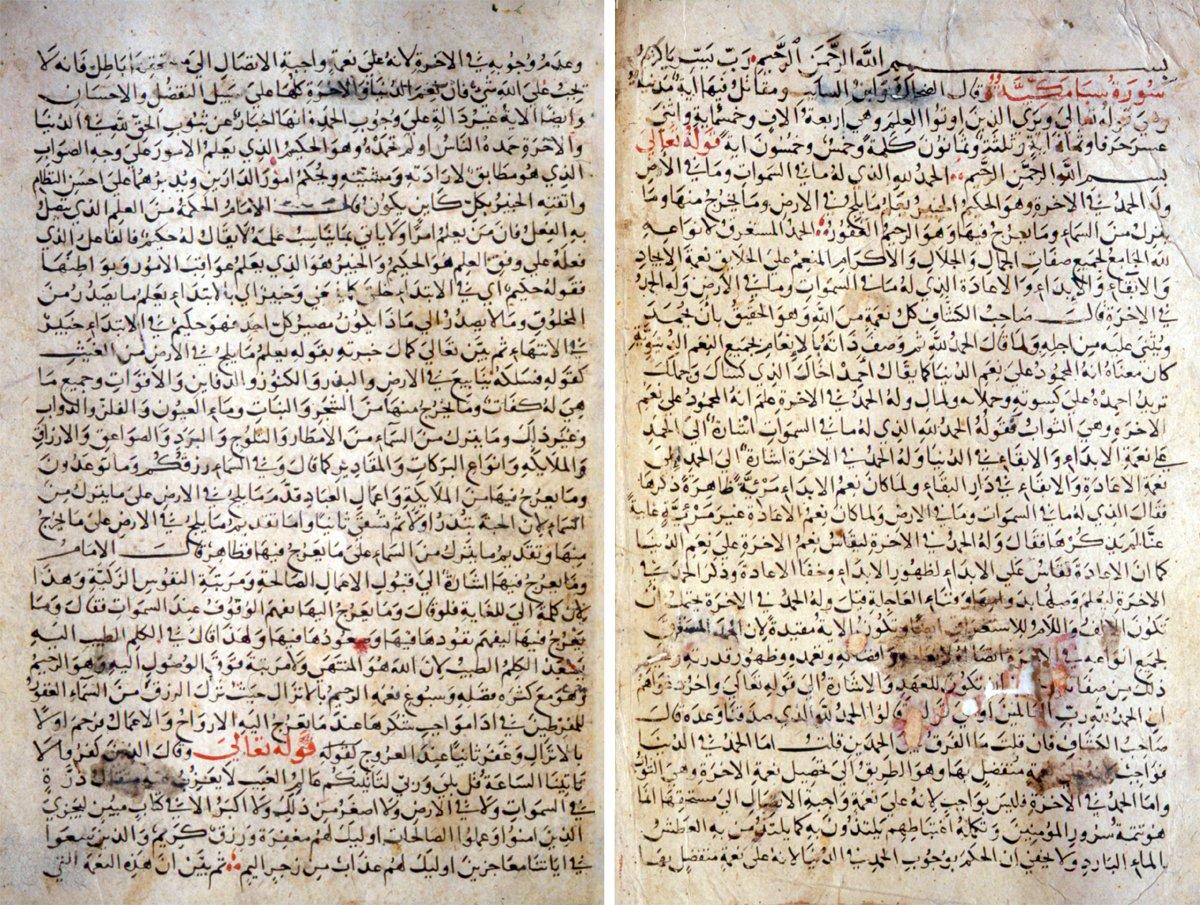 بسم الله الرحمن الرحيم رب يسر يا كريم
سورة سبا مكية قال الضحاك وابن السايب ومقاتل فيها اية مدنية
وهي قوله تعالى ويرى الذين اوتوا العلم وهي اربعة الاف وخمسماية واثنى
عشر حرفا وثمانماية وثلثة وثمانون كلمة وخمس وخمسون اية قوله تعالى
بسم الله الرحمن الرحيم الحمد لله الذي له ما في السموات وما في الارض
وله الحمد في الاخرة وهو الحكيم الخبير يعلم ما يلج في الارض وما يخرج منها وما
ينزل من السماء وما يعرج فيها وهو الرحيم الغفور الحمد المستغرق لانواعه
لله الجامع لجميع صفات الجمال والجلال والاكرام المنعم على الخلايق نعمة الايجاد
والابقاء والابداء والاعادة الذي له ما في السموات وما في الارض وله الحمد
في الاخرة قال صاحب الكشاف كل نعمة من الله وهو الحقيق بان يحمد
ويثنى عليه من اجله ولما قال الحمد لله ثم وصف ذاته بالانعام لجميع النعم الدنيوية
كان معناه انه المحمود على نعم الدنيا كما يقال احمد اخاك الذي كساك وحملك
تريد احمده على كسوته وحملانه ولما قال وله الحمد في الاخرة علم انه المحمود على نعم
الاخرة وهي الثواب فقوله الحمد لله الذي له ما في السموات اشارة الى الحمد
على نعمة الابداء والابقاء في الدنيا وله الحمد في الاخرة اشارة الى الحمد على
نعمة الاعادة والابقاء في دار البقاء ولما كان نعم الابداء مرئية ظاهرة ذكرها
فقال الذي له ما في السموات وما في الارض ولما كان نعم الاعادة غير مرئية غايبة
عنا لم يذكرها فقال وله الحمد في الاخرة ليقاس نعم الاخرة على نعم الدنيا
كما ان الاعادة تقاس على الابداء لظهور الابداء وخفا الاعادة وذكر الحمد في
الاخرة ليعلم وثناء العاجلة قبل وله الحمد في الاخرة يحتمل ان
تكون الالف واللام للاستغراق ويكون الاية مفيدة لان الحمد
لجميع انواعه في الاخرة وظهور قدرته وغير
ذلك من صفاته تكون للعهد والاشارة الى قوله تعالى واخر دعواهم
ان الحمد لله رب العالمين او الى قوله وقالوا الحمد لله الذي صدقنا وعده قال
صاحب الكشاف فان قلت ما الفرق بين الحمدين قلت اما الحمد في الدنيا
فواجب متفضل بها وهو الطريق الى تحصيل نعمة الاخرة وهي الثواب
واما الحمد في الاخرة فليس بواجب لانه على نعمة واجبة الايصال الى مستحقها انما
هو تتمة سرور المؤمنين وتكملة اغتباطهم يلتذون به كما يلتذ من به العطش
بالماء البارد ولا يخفى ان الحكم بوجوب الحمد في الدنيا لانه على نعمة متفضل بها
وعدم وجوبه في الاخرة لانه على نعمة واجبة الايصال الى مستحقها باطل فانه لا
يجب على الله شي فان نعم الدنيا والاخرة كلها على سبيل التفضل والاحسان
وايضا الاية غير دالة على وجوب الحمد انها اخبار عن ثبوت الحق لله في الدنيا
والاخرة حمده الناس او لم يحمدوه وهو الحكيم الذي يعلم الامور على وجه الصواب
الذي هو مطابق لارادته ومشيته ويحكم امور الدارين ويدبرهما على احسن النظام
واتقنه الخبير بكل كاين يكون قال الامام الحكمة من العلم الذي يتصل
به الفعل فان من يعلم امرا ولا ياتي بما يناسب علمه لا يقال له حكيم فالفاعل الذي
فعله على وفق العلم هو الحكيم والخبير هو الذي يعلم عواقب الامور وبواطنها
فقوله حكيم اي في الابتداء خلق كما ينبغي وخبير اي بالانتهاء يعلم ما يصدر من
المخلوق وما لا يصدر الى ماذا يكون مصير كل احد فهو حكيم في الابتداء خبير
في الانتهاء ثم بين تعالى كمال خبرته بقوله يعلم ما يلج في الارض من الغيث
كقوله فسلكه ينابيع في الارض والبذر والكنوز والدفاين والاموات وجميع ما
هي له كفات وما يخرج منها من الشجر والنبات وماء العيون والفلز والدواب
وغير ذلك وما ينزل من السماء من الامطار والثلوج والبرد والصواعق والارزاق
والملايكة وانواع البركات والمقادير كما قال وفي السماء رزقكم وما توعدون
وما يعرج فيها من الملايكة واعمال العباد قدم ما يلج في الارض على ما ينزل من
السماء لان الحبة تبذر اولا ثم تسقى ثانيا واما تقديم ما يلج في الارض على ما يخرج
منها وتقديم ما ينزل من السماء على ما يعرج فيها فظاهر قال الامام
وما يعرج فيها اشارة الى قبول الاعمال الصالحة ومرتبة النفوس الزكية وهذا
لان كلمة الى للغاية فلو قال وما يعرج اليها لفهم الوقوف عند السموات فقال وما
يعرج فيها ليفهم نفوذها فيها وصعودها فيها ولهذا قال في الكلم الطيب اليه
يصعد الكلم الطيب لان الله هو المنتهى ولا مرتبة فوق الوصول اليه وهو الرحيم
وهو مع كثرة فضله وسبوغ نعمه الرحيم بالانزال حيث ينزل الرزق من السماء الغفور
للمفرطين في اداء مواجب شكرها عند ما يعرج اليه الارواح والاعمال فرحم اولا
بالانزال وغفر ثانيا عند العروج لقوله قوله تعالى وقال الذين كفروا لا
تاتينا الساعة قل بلى وربي لتاتينكم عالم الغيب لا يعزب عنه مثقال ذرة
في السموات ولا في الارض ولا اصغر من ذلك ولا اكبر الا في كتاب مبين ليجزي
الذين امنوا وعملوا الصالحات اوليك لهم مغفرة ورزق كريم والذين سعوا
في اياتنا معاجزين اوليك لهم عذاب من رجز اليم ثم بين ان هذه النعمة التي